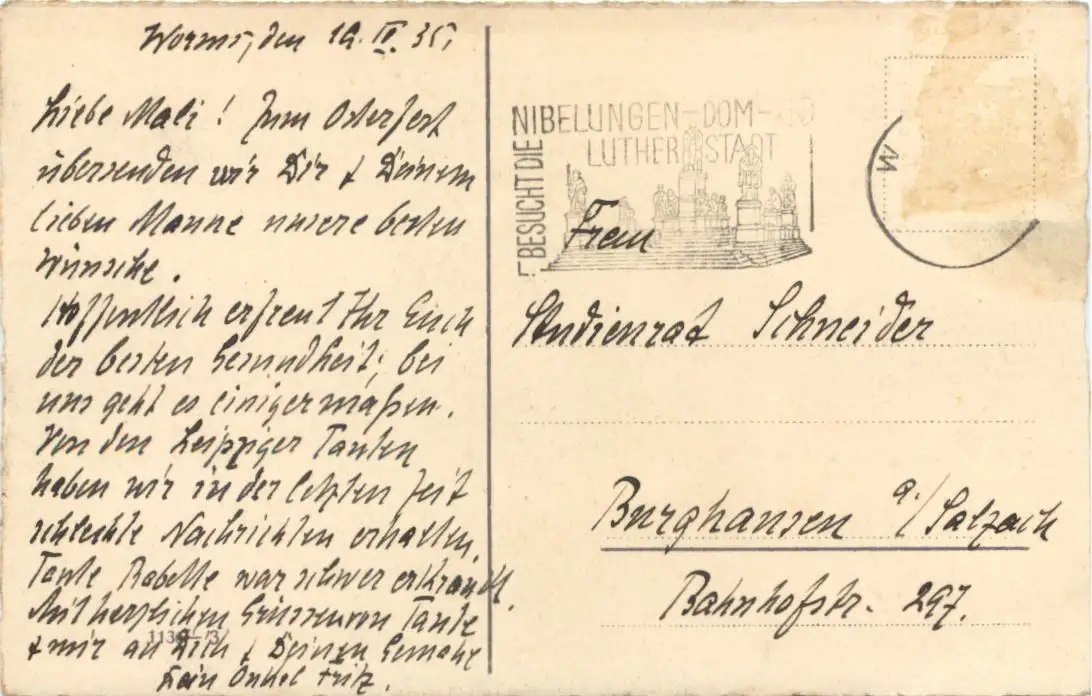 Worms, den 19. IV. 35,
Liebe Mali! Zum Osterfest
übersenden wir Dir & Deinem
lieben Manne unsere besten
Wünsche.
Hoffentlich erfreut Ihr Euch
der besten Gesundheit; bei
uns geht es einigermaßen.
Von den Leipziger Tanten
haben wir in der letzten Zeit
schlechte Nachrichten erhalten,
Tante Babette war schwer erkrankt.
Mit herzlichen Grüssen von Tante
& mir an Dich & Deinen Gemahl
Dein Onkel Fritz.
1136 /3
BESUCHT DIE
NIBELUNGEN-DOM-
LUTHERSTADT
W
Frau
Studienrat Schneider
Burghausen a./Salzach
Bahnhofstr. 297.